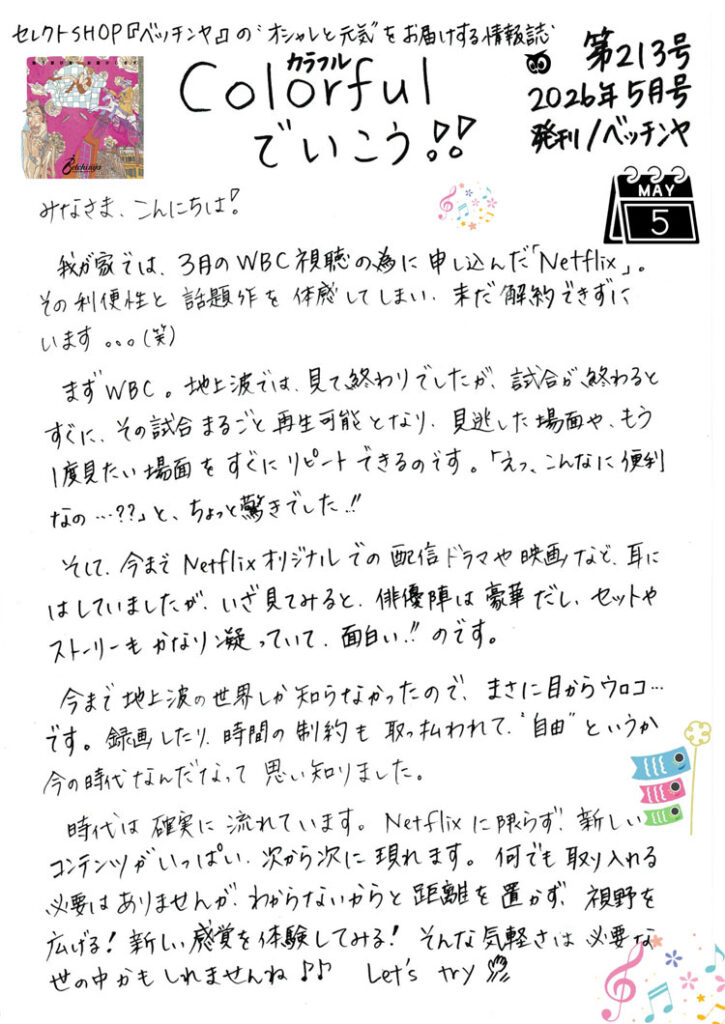 セレクトSHOP『ベッチンヤ』の“オシャレと元気”をお届けする情報誌
カラフル
Colorful
でいこう!!
第213号
2026年5月号
発刊/ベッチンヤ
Betchinya
MAY
5
みなさま、こんにちは!
我が家では、3月のWBC視聴の為に申し込んだ「Netflix」。
その利便性と話題作を体感してしまい、未だ解約できずに
います。。。(笑)
まずWBC。地上波では、見て終わりでしたが、試合が終わると
すぐに、その試合まるごと再生可能となり、見逃した場面や、もう
1度見たい場面をすぐにリピートできるのです。「えっ、こんなに便利
なの…??」と、ちょっと驚きでした!!
そして、今までNetflixオリジナルでの配信ドラマや映画など、耳に
はしていましたが、いざ見てみると、俳優陣は豪華だし、セットや
ストーリーもかなり凝っていて、面白い!!のです。
今まで地上波の世界しか知らなかったので、まさに目からウロコ…
です。録画したり、時間の制約も取っ払われて、“自由”というか
今の時代なんだなって思い知りました。
時代は確実に流れています。Netflixに限らず、新しい
コンテンツがいっぱい、次から次に現れます。何でも取り入れる
必要はありませんが、わからないからと距離を置かず、視野を
広げる!新しい感覚を体験してみる!そんな気軽さは必要な
世の中かもしれませんね♪♪ Let's try